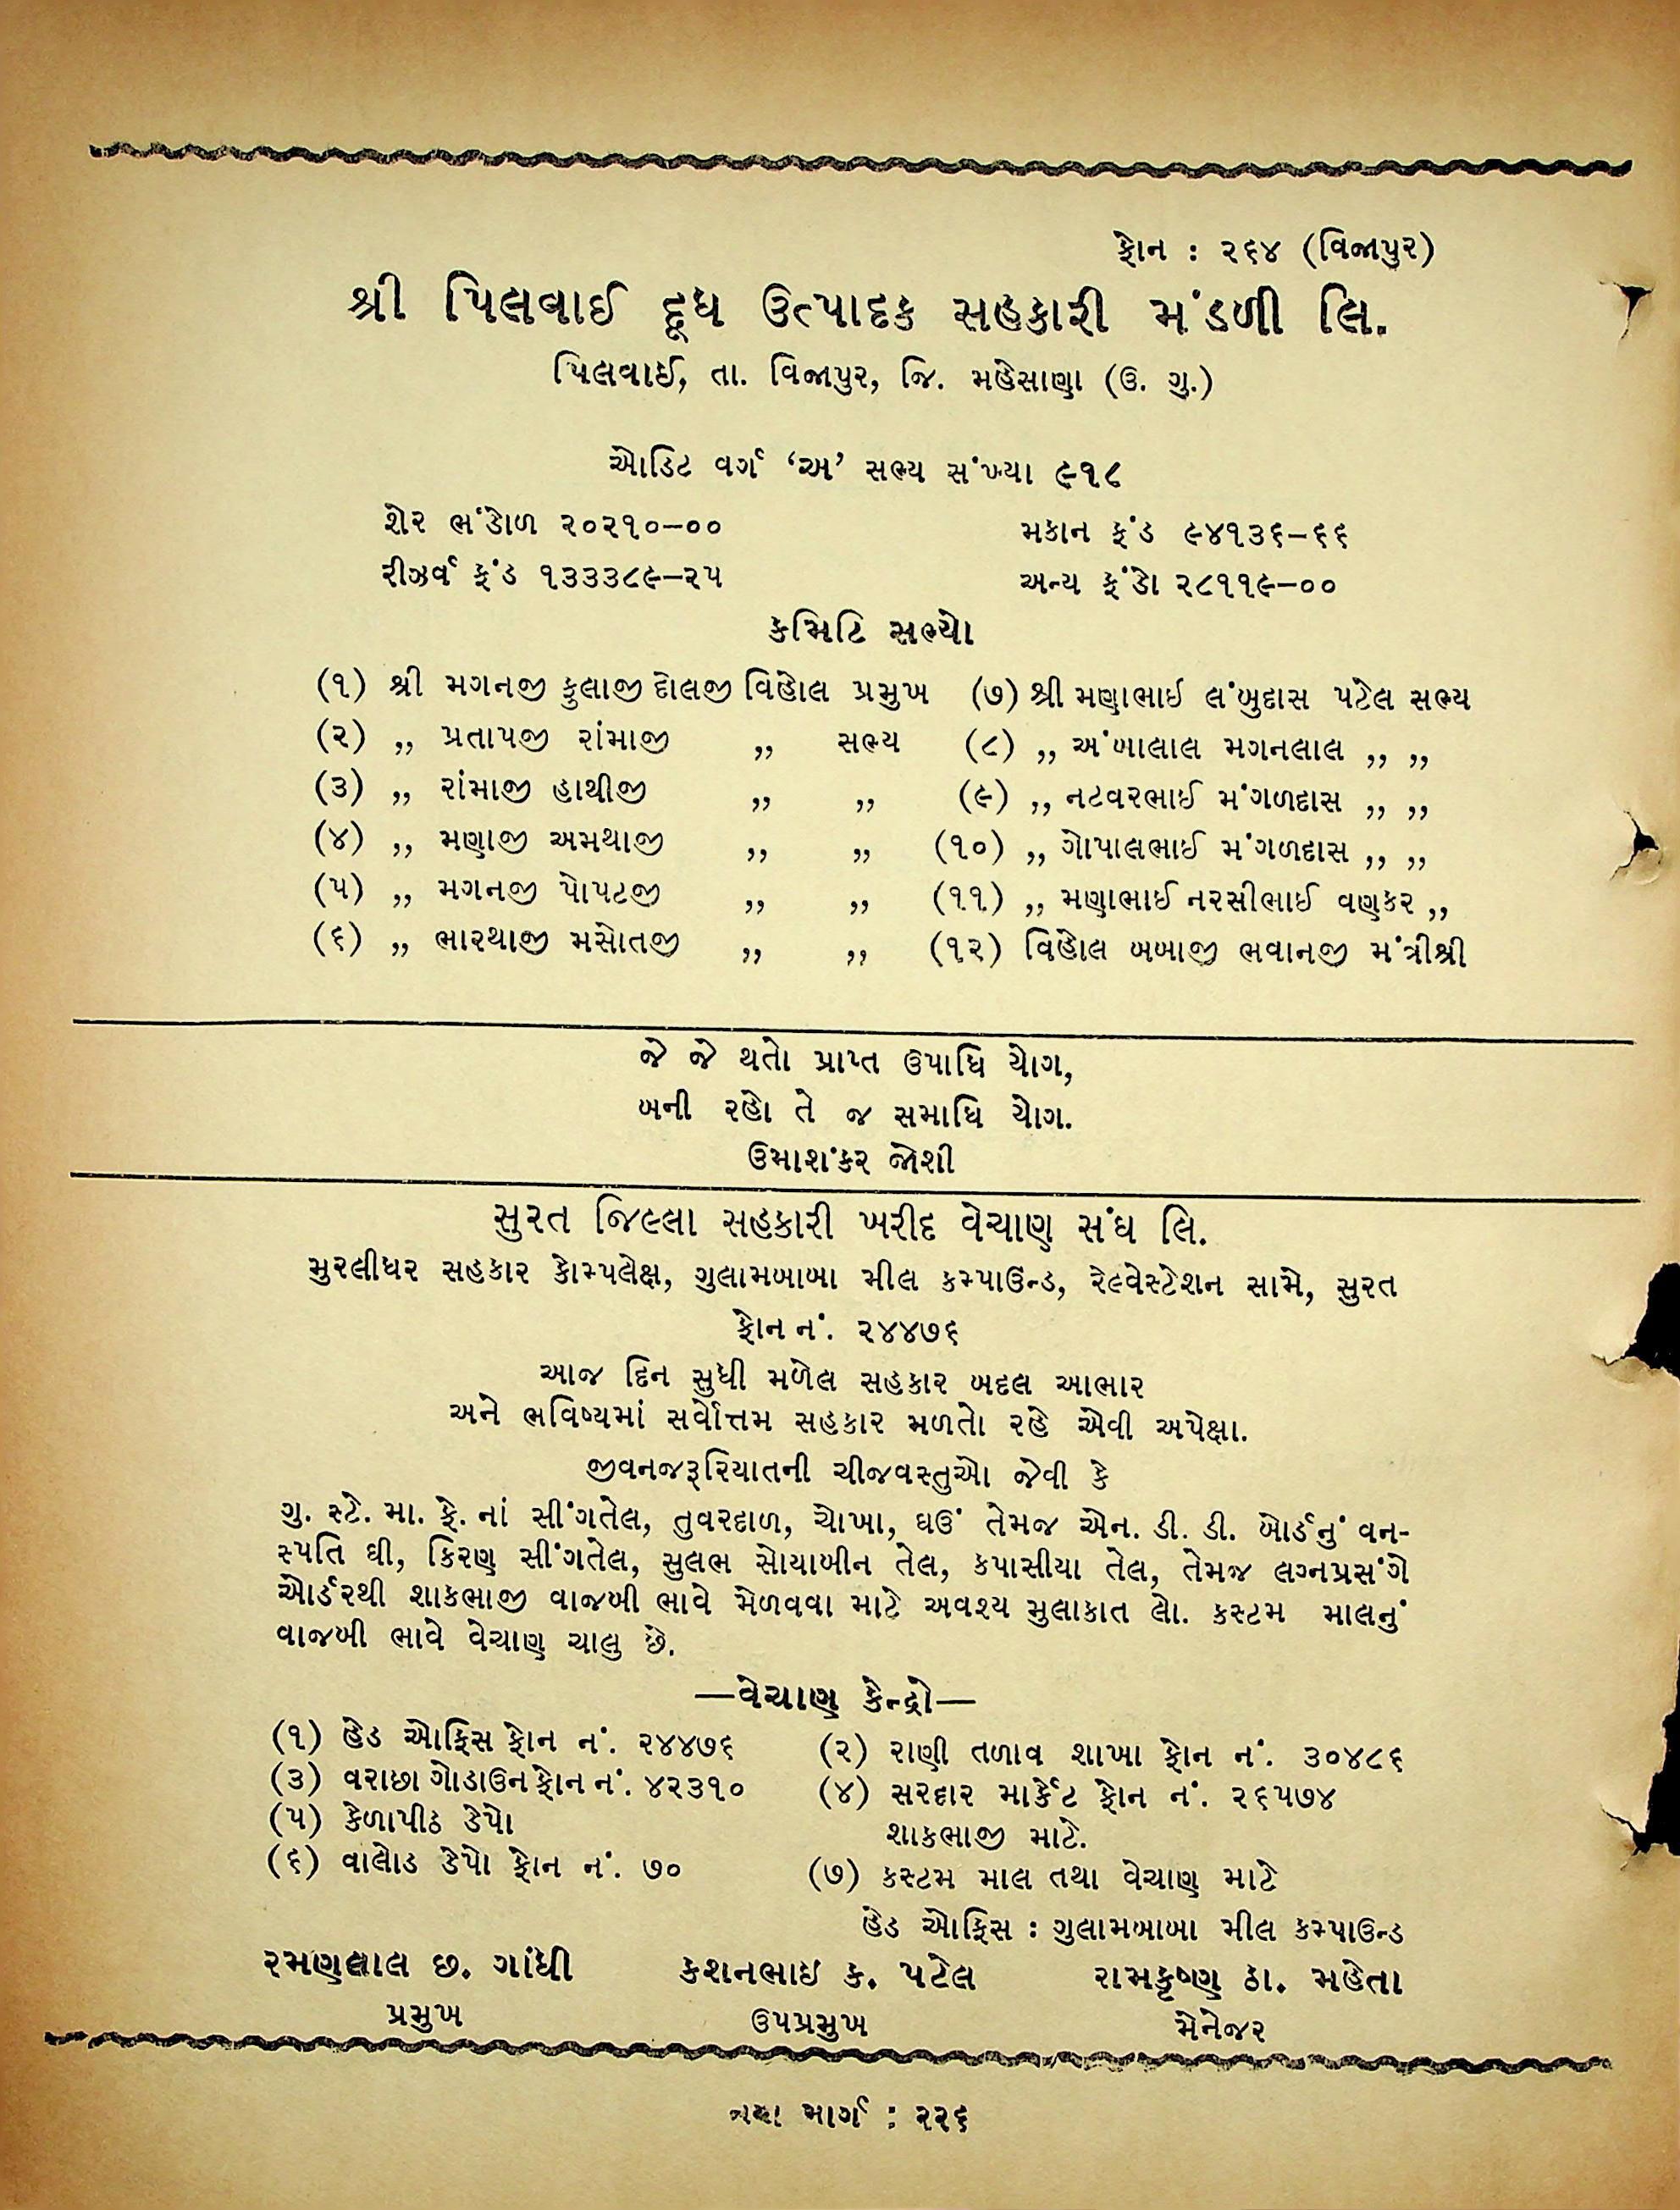 ફોન : ૨૬૪ (વિજાપુર)
શ્રી પિલવાઈ દૂધ ઉત્પાદક સહકારી મંડળી લિ.
પિલવાઈ, તા. વિજાપુર, જિ. મહેસાણા (ઉ. ગુ.)
ઓડિટ વર્ગ ‘અ’ સભ્ય સંખ્યા ૯૧૮
શેર ભંડોળ ૨૦૨૧૦–૦૦ મકાન ફંડ ૯૪૧૩૬–૬૬
રીઝર્વ ફંડ ૧૩૩૩૮૯–૨૫ અન્ય ફંડો ૨૮૧૧૯–૦૦
કમિટિ સભ્યો
(૧) શ્રી મગનજી કુલાજી દોલજી વિહોલ પ્રમુખ (૭) શ્રી મણાભાઈ લંબુદાસ પટેલ સભ્ય
(૨) ,, પ્રતાપજી રાંમાજી ,, સભ્ય (૮) ,, અંબાલાલ મગનલાલ ,, ,,
(૩) ,, રાંમાજી હાથીજી ,, ,, (૯) ,, નટવરભાઈ મંગળદાસ ,, ,,
(૪) ,, મણાજી અમથાજી ,, ,, (૧૦) ,, ગોપાલભાઈ મંગળદાસ ,, ,,
(૫) ,, મગનજી પોપટજી ,, ,, (૧૧) ,, મણાભાઈ નરસીભાઈ વણકર ,,
(૬) ,, ભારથાજી મસોતજી ,, ,, (૧૨) વિહોલ બબાજી ભવાનજી મંત્રીશ્રી
જે જે થતો પ્રાપ્ત ઉપાધિ યોગ,
બની રહો તે જ સમાધિ યોગ.
ઉમાશંકર જોશી
સુરત જિલ્લા સહકારી ખરીદ વેચાણ સંઘ લિ.
મુરલીધર સહકાર કોમ્પલેક્ષ, ગુલામબાબા મીલ કમ્પાઉન્ડ, રેલ્વેસ્ટેશન સામે, સુરત
ફોન નં. ૨૪૪૭૬
આજ દિન સુધી મળેલ સહકાર બદલ આભાર
અને ભવિષ્યમાં સર્વોત્તમ સહકાર મળતો રહે એવી અપેક્ષા.
જીવનજરૂરિયાતની ચીજવસ્તુઓ જેવી કે
ગુ. સ્ટે. મા. ફે. નાં સીંગતેલ, તુવરદાળ, ચોખા, ઘઉં તેમજ એન. ડી. ડી. બોર્ડનું વન-
સ્પતિ ઘી, કિરણ સીંગતેલ, સુલભ સોયાબીન તેલ, કપાસીયા તેલ, તેમજ લગ્નપ્રસંગે
ઓર્ડરથી શાકભાજી વાજબી ભાવે મેળવવા માટે અવશ્ય મુલાકાત લો. કસ્ટમ માલનું
વાજબી ભાવે વેચાણ ચાલુ છે.
—વેચાણ કેન્દ્રો—
(૧) હેડ ઓફિસ ફોન નં. ૨૪૪૭૬ (૨) રાણી તળાવ શાખા ફોન નં. ૩૦૪૮૬
(૩) વરાછા ગોડાઉન ફોન નં. ૪૨૩૧૦ (૪) સરદાર માર્કેટ ફોન નં. ૨૬૫૭૪
(૫) કેળાપીઠ ડેપો શાકભાજી માટે.
(૬) વાલોડ ડેપો ફોન નં. ૭૦ (૭) કસ્ટમ માલ તથા વેચાણ માટે
હેડ ઓફિસ : ગુલામબાબા મીલ કમ્પાઉન્ડ
રમણલાલ છ. ગાંધી કશનભાઇ ક. પટેલ રામકૃષ્ણ ઠા. મહેતા
પ્રમુખ ઉપપ્રમુખ મેનેજર
નયા માર્ગ : ૨૨૬